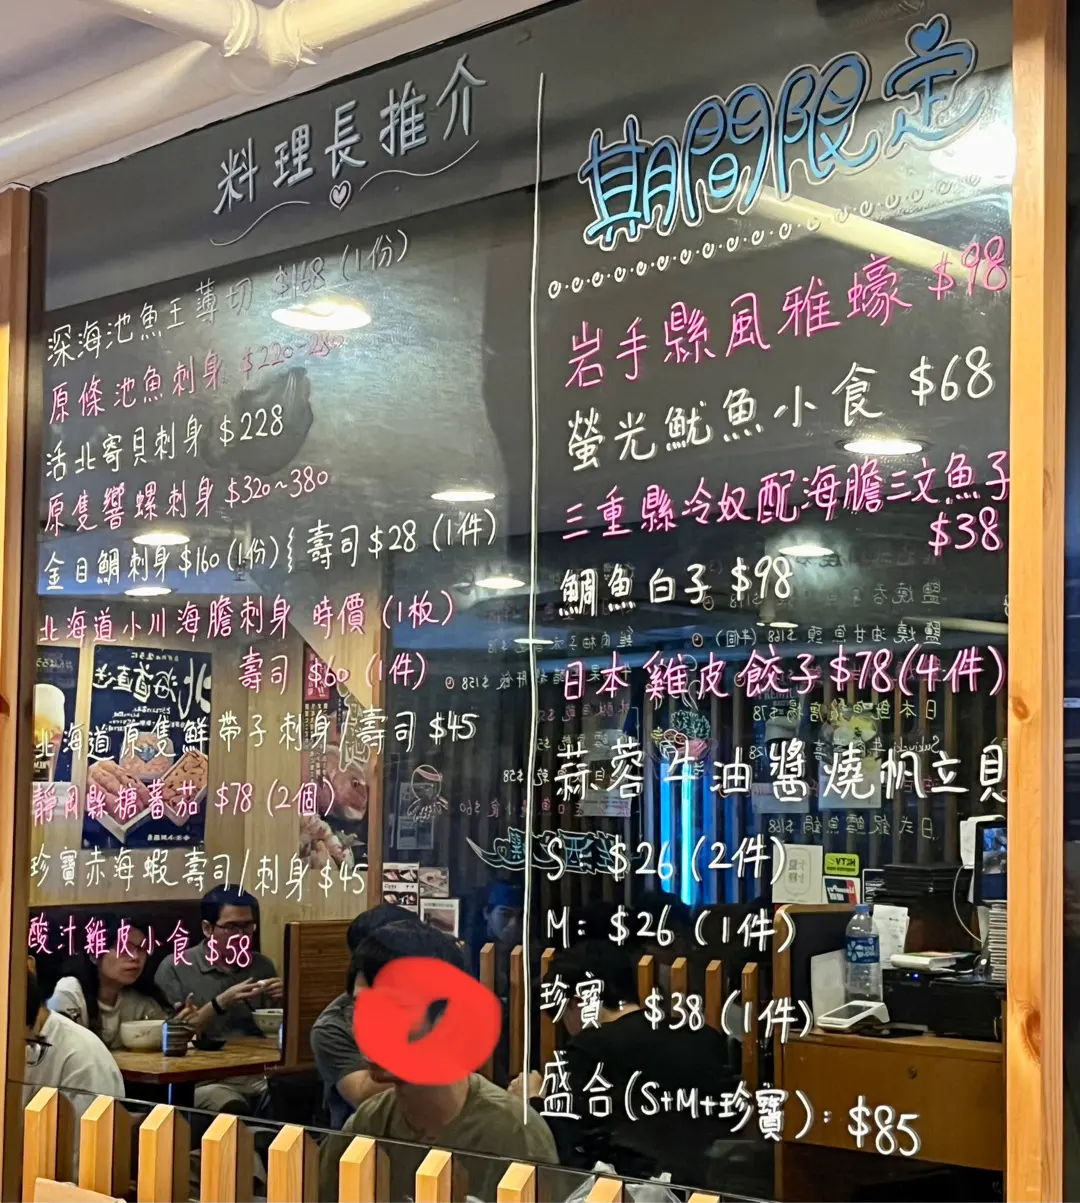 料理長推介
深海池魚王薄切 $168 (1份)
原條池魚刺身 $220-280
活北寄貝刺身 $228
原隻響螺刺身 $320~380
金目鯛刺身 $160 (1份) 壽司 $28 (1件)
北海道小川海膽刺身 時價 (1板)
壽司 $60 (1件)
北海道原隻鮮帶子刺身/壽司 $45
靜岡縣糖蕃茄 $78 (2個)
珍寶赤海蝦壽司/刺身 $45
酸汁雞皮小食 $58
期間限定
岩手縣風雅蠔 $98
螢光魷魚小食 $68
三重縣冷奴配海膽三文魚子
$38
鯛魚白子 $98
日本雞皮餃子 $78 (4件)
蒜蓉牛油醬燒帆立貝
S: $26 (2件)
M: $26 (1件)
珍寶: $38 (1件)
盛合 (S+M+珍寶): $85